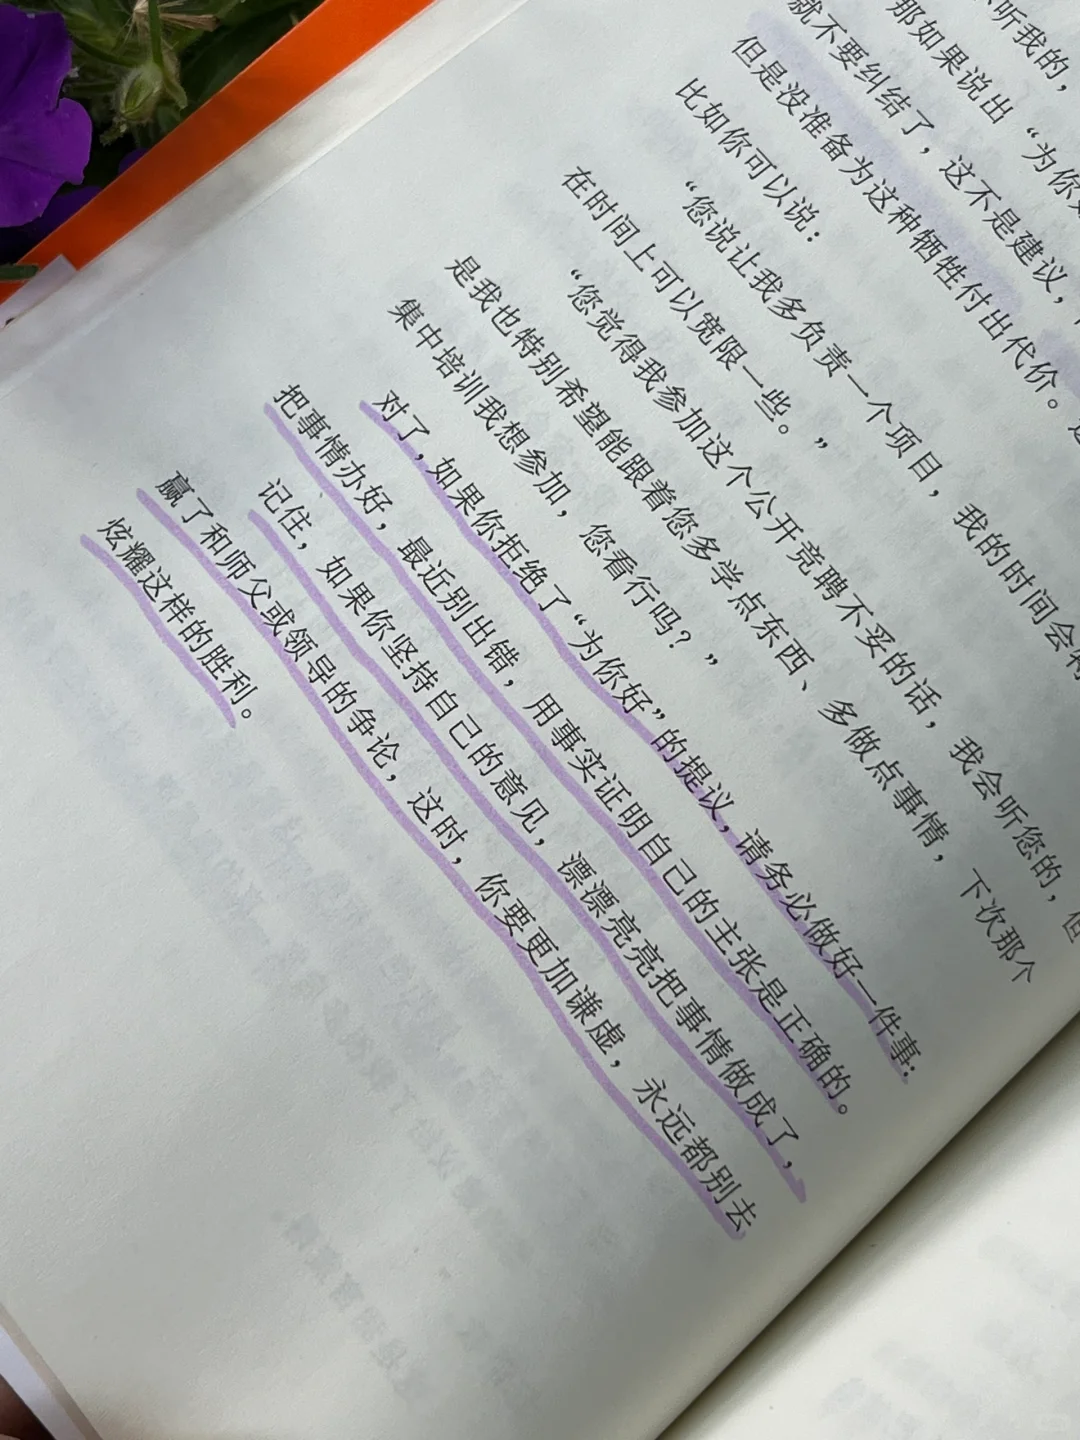 听我的，
那如果说出“为你好
就不要纠结了，这不是建议，
但是没准备为这种牺牲付出代价。
比如你可以说：
“您说让我多负责一个项目，我的时间会
在时间上可以宽限一些。”
“您觉得我参加这个公开竞聘不妥的话，我会听您的，但
是我也特别希望能跟着您多学点东西、多做点事情，下次那个
集中培训我想参加，您看行吗？”
对了，如果你拒绝了“为你好”的提议，请务必做好一件事：
把事情办好，最近别出错，用事实证明自己的主张是正确的。
记住，如果你坚持自己的意见，漂漂亮亮把事情做成了，
赢了和师父或领导的争论，这时，你要更加谦虚，永远都别去
炫耀这样的胜利。